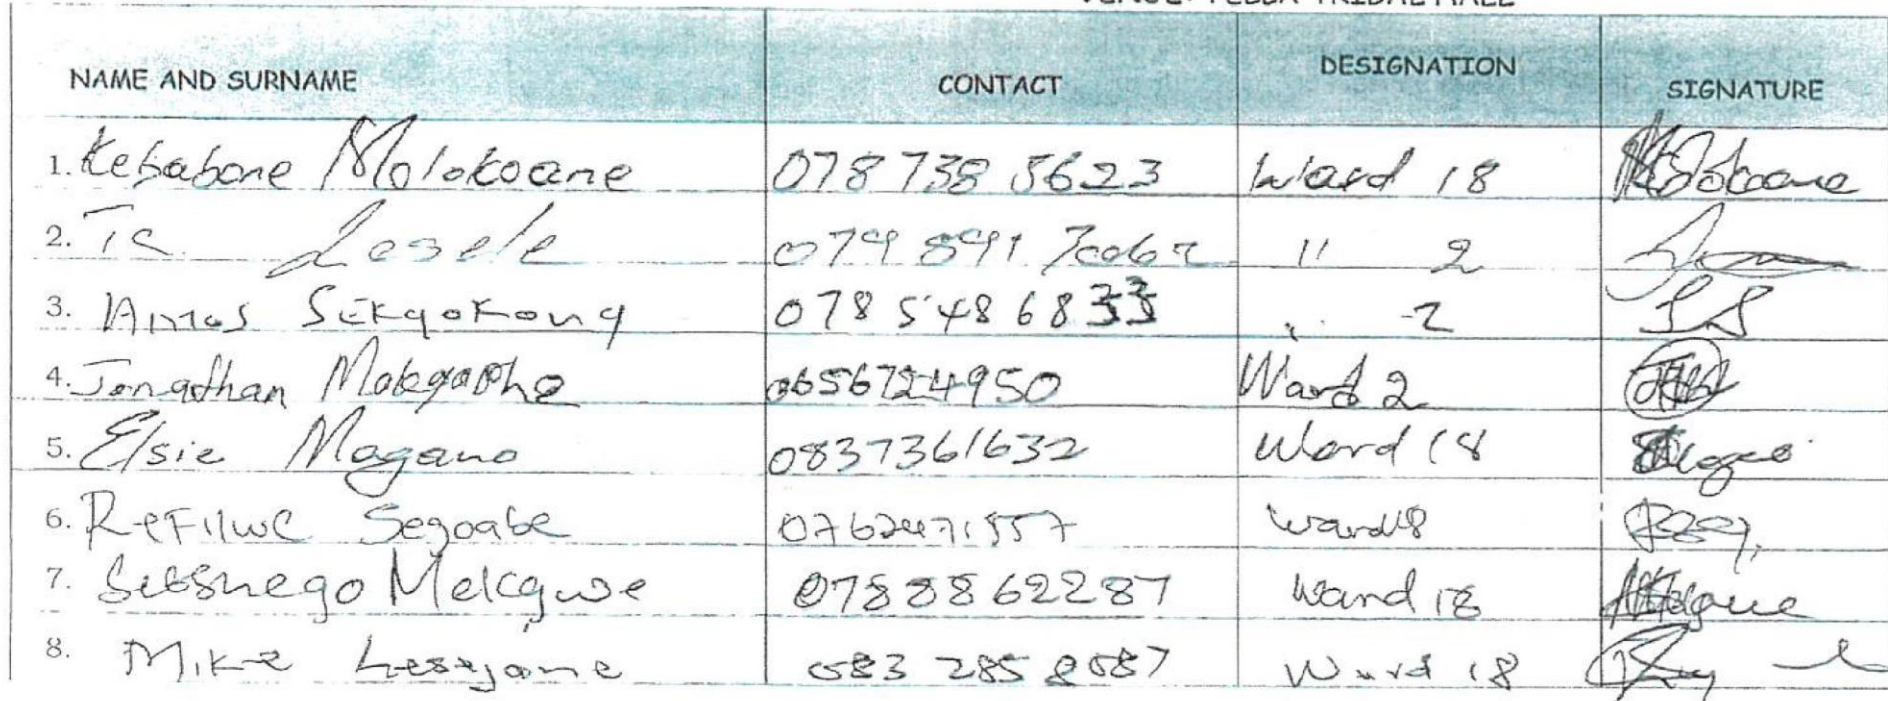 VENUE: PELLA TRIBAL HALL
NAME AND SURNAME CONTACT DESIGNATION SIGNATURE
1. Kebabone Molokoane 078 738 5623 Ward 18 Molokoane
2. Lesele 079 891 " 2
3. Amos Sekgokong 078 548 6833 2
4. Jonathan Makgaphe 0656724950 Ward 2
5. Elsie Magano 0837361632 Ward 18
6. Refilwe Segoabe 0762471557 ward 18
7. Mekgwe 0788862287 Ward 18
8. Mike 083 285 8087 Ward 18